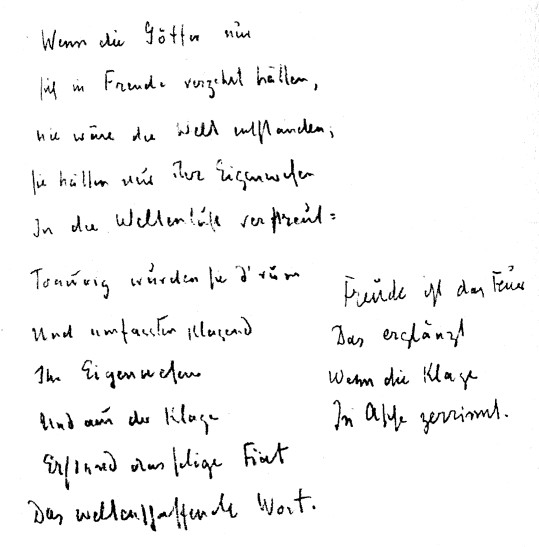 Wenn die Götter nur
sich in Freude verzehrt hätten,
nie wäre die Welt entstanden;
sie hätten nur ihr Eigenwesen
In die Weltenlüfte verstreut:
Traurig wurden sie d'rum
Und umfassten klagend
Ihr Eigenwesen
Und aus der Klage
Erstand das selige Fiat
Das weltenschaffende Wort.
Freude ist das Feuer
Das erglänzt
Wenn die Klage
In Asche zerrinnt.